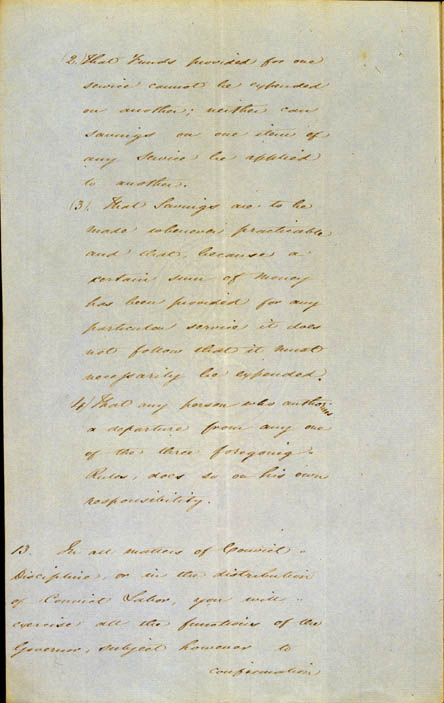 (2. That Funds provided for one
service cannot be expended
on another; neither can
savings on one item of
any service be applied
to another.
(3). That Savings are to be
made whenever practicable
and that, because a
certain sum of money
has been provided for any
particular service it does
not follow that it must
necessarily be expended.
(4) That any person who authorises
a departure from any one
of the three foregoing
Rules, does so on his own
responsibility.
13. In all matters of Convict
Discipline, or in the distribution
of Convict Labor, you will
exercise all the functions of the
Governor, subject however to
confirmation